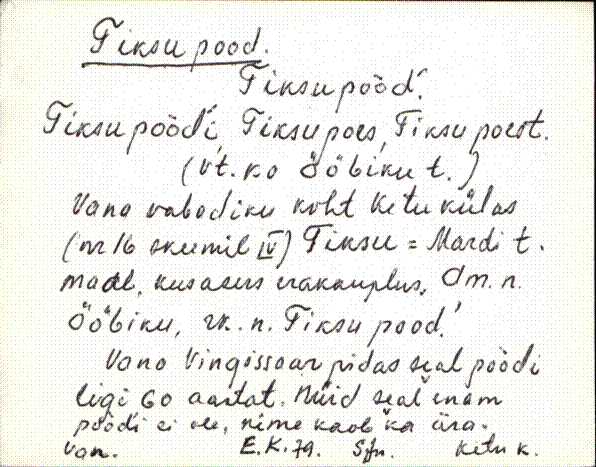 Tiksu pood.
Tiksu pööd´.
Tiksu pöödi, Tiksu poes, Tiksu poest.
(vt. ka Ööbiku t.)
Vana vabadiku koht Ketu külas
(nr 16 skeemil IV) Tiksu = Mardi t.
maal, kus asus erakauplus. Am. n.
Ööbiku, rk. n. Tiksu pood.
Vana Vingissaar pidas seal pöödi
ligi 60 aastat. Nüid seal enam
pöödi ei ole, nime kaob ka ära.
Van. E.K. 79. Sjn. Ketu k.